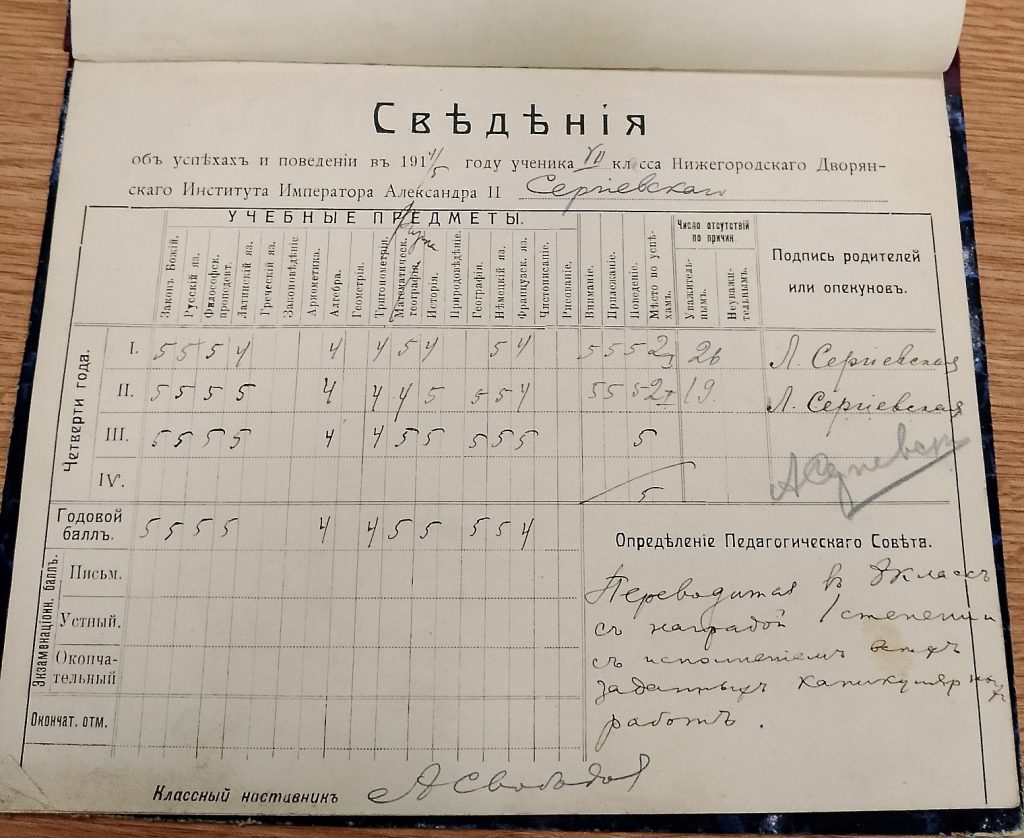 Свѣдѣнія
объ успѣхахъ и поведеніи въ 1914/5 году ученика VII кл сса Нижегородскаго Дворян-
скаго Института Императора Александра II Сергіевскаго
УЧЕБНЫЕ ПРЕДМЕТЫ.
Законъ Божій.
Русскій яз.
Философск. пропедевт.
Латинскій яз.
Греческій яз.
Законовѣдѣніе
Ариѳметика.
Алгебра.
Геометрія.
Тригонометрія.
Математическ. географія
Исторія.
Природовѣдѣніе.
Географія.
Нѣмецкій яз.
Французск. яз.
Чистописаніе.
Рисованіе.
Вниманіе.
Прилежаніе.
Поведеніе.
Мѣсто по успѣ-
хамъ.
Число отсутствій
по причин.
Уважитель-
нымъ.
Неуважи-
тельнымъ.
Подпись родителей
или опекуновъ.
Четверти года.
I. 5 5 5 4 4 4 5 4 5 4 5 5 5 2 26 Л. Сергіевская
II. 5 5 5 5 4 4 4 5 5 5 4 5 5 5 2 19. Л. Сергіевская
III. 5 5 5 5 4 4 5 5 5 5 5 5
IV. 5
Годовой
баллъ. 5 5 5 5 4 4 5 5 5 5 4
Экзаменаціонн. баллъ.
Письм.
Устный.
Оконча-
тельный
Окончат. отм.
Опредѣленіе Педагогическаго Совѣта.
Переводится въ 8 классъ
съ наградой I степени и
съ исполненіемъ всѣхъ
заданныхъ каникулярныхъ
работъ.
Классный наставникъ